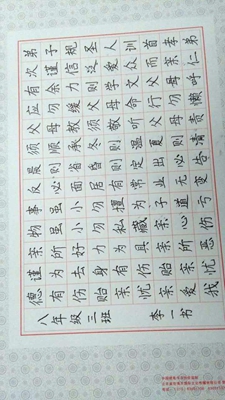 弟子规圣人训首孝弟
次谨信泛爱众而亲仁
有余力则学文父母呼
应勿缓父母命行勿懒
父母教须敬听父母责
须顺承冬则温夏则清
晨则省昏则定出必告
反必面居有常业无变
事虽小勿擅为子道亏
物虽小勿私藏亲心伤
亲所好力为具亲所恶
谨为去身有伤贻亲忧
德有伤贻亲忧亲爱我
八年级三班 李一书